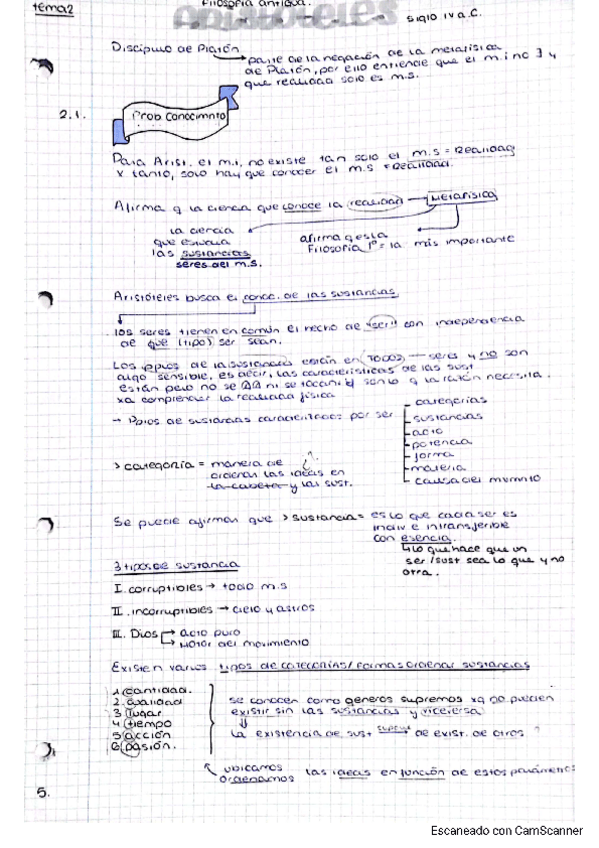 tema2
Filosofía antigua.
ARISTÓTELES
Siglo IV a.C.
Discípulo de Platón
parte de la negación de la metafísica
de Platón, por ello entiende que el m.i no ∃ y
que realidad solo es m.s.
2.1.
Prob. Conocimnto
Para Arist. el m.i, no existe tan solo el m.s = Realidad
x tanto, solo hay que conocer el m.s = Realidad.
Afirma q la ciencia que conoce la realidad → Metafísica
la ciencia
que estudia
las sustancias
seres del m.s.
afirma q es la
Filosofía 1ª = la más importante
Aristóteles busca el conoc. de las sustancias
los seres tienen en común el hecho de "ser" con independencia
de que (tipo) ser sean.
Los ppios de la sustancias están en TODOS seres y no son
algo sensible, es decir, las características de las sust
están pero no se ni se tocan son lo q la razón necesita
xa comprender la realidad física
→ de sustancias caracterizados por ser
categorías
sustancias
acto
potencia
forma
materia
causa del movimnto
> categoría = manera de
ordenar las ideas en
la cabeza y las sust.
Se puede afirmar que > sustancia = es lo que cada ser es
indiv e intransferible
con esencia.
↳ lo que hace que un
ser/sust sea lo que y no
otra.
3 tipos de sustancia
I. corruptibles → todo m.s
II. incorruptibles → cielo y astros
III. Dios
acto puro
Motor del movimiento
Existen varios tipos de categorías/formas ordenar sustancias
1 cantidad.
2 cualidad
3 lugar
4 tiempo
5 acción
6 pasión.
se conocen como géneros supremos xq no pueden
existir sin las sustancias y viceversa
⇓
la existencia de sust de exist. de otros
ubicamos
ordenamos
las ideas en función de estos parámetros
5.
Escaneado con CamScanner